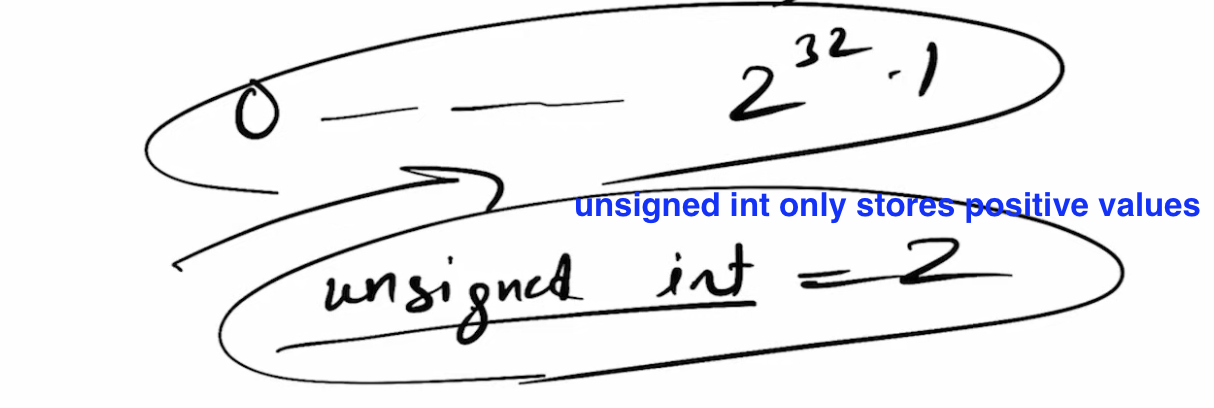 0 — — 2^32 - 1
unsigned int only stores positive values
unsigned int = 2